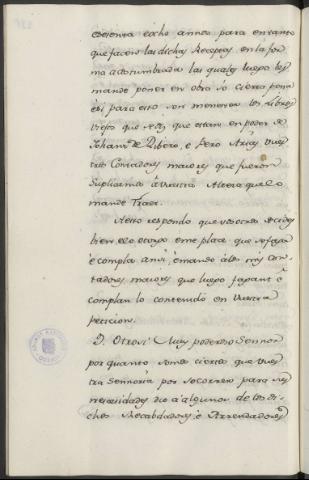 cosienta e ocho annos para en tanto
que facion las dichas Recepta, en la for
ma acostumbrada las quales luego les
mande poner en obra só cierta pena
e si para esto son menester los Libros
viejos que se dis que estan en poder de
Johan de Ribero, e Pero Arias vues
tros Contadores maiores que fueron
suplicamos á vuestra Alteza que lo
mande traer.
A esto respondo que vosotros decides
bien e lo otorgo e me place que se faga
e compla ansi e mando á los mis con
tadores maiores que luego fagan é
complan lo contenido en vuestra
peticion.
Otrosi Mui poderoso Sennor
por quanto somos ciertos que vues
tra Sennoria por socorrer para sus
necesidades dió á algunos de los di
chos Recabdadores, é Arrendadores